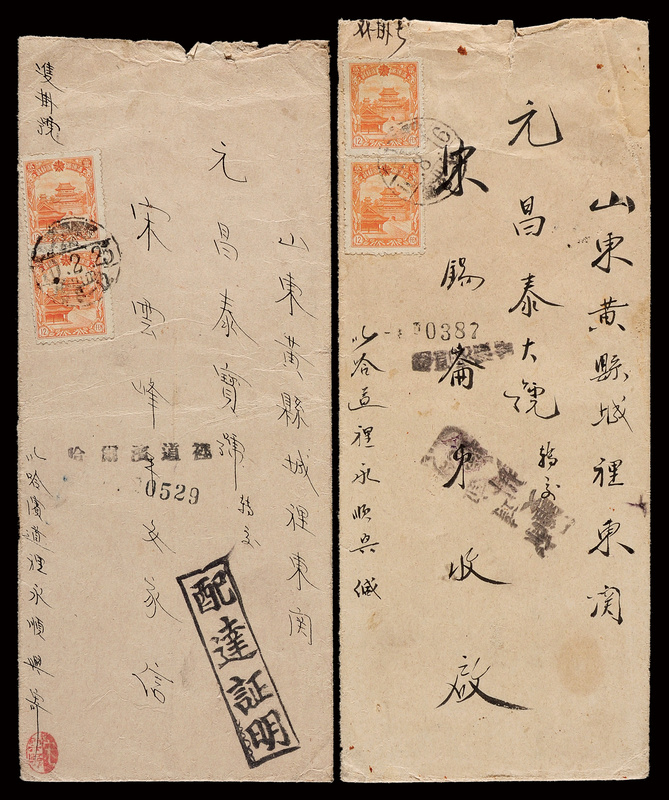 雙掛號
山東黃縣城裡東関
元昌泰寶號
轉交
宋雲峰
家信
哈爾濱道裡
0529
配達証明
哈濱道裡永順興寄
12
12
山東黃縣城裡東関
元昌泰大號
轉交
宋錫崙
收啟
哈道裡永順興緘
0387
12
12